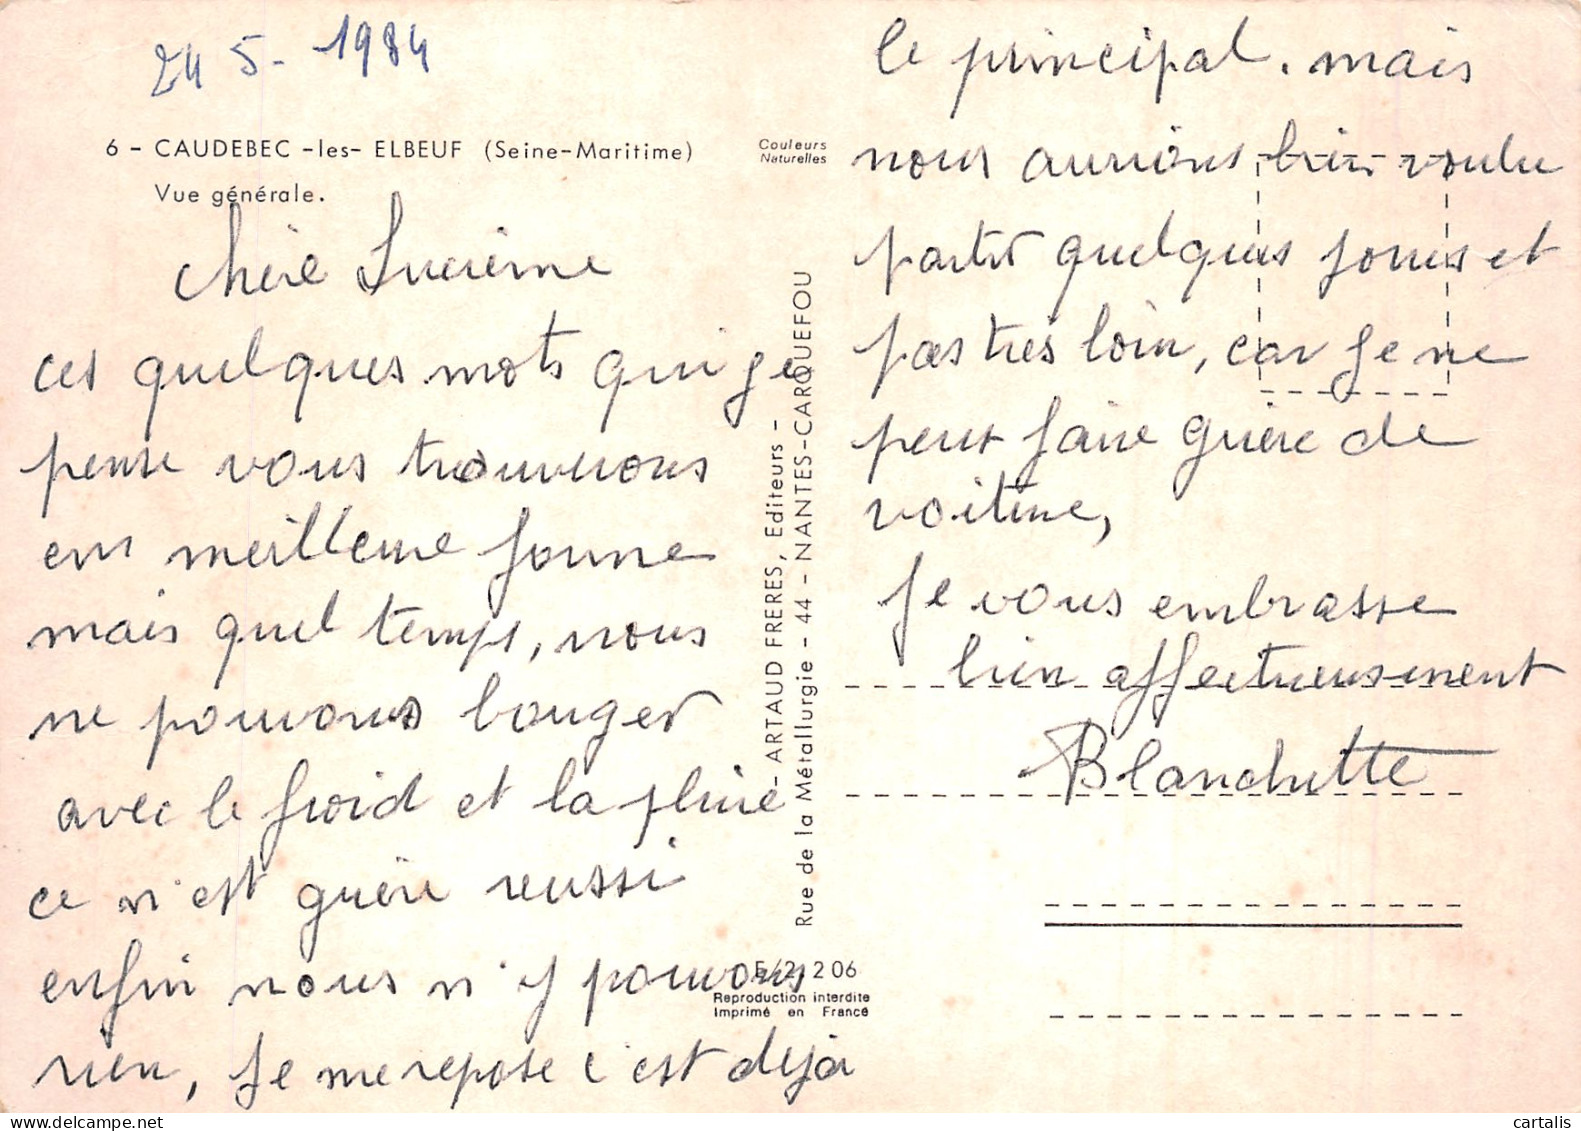 24 5 - 1984
6 - CAUDEBEC -les- ELBEUF (Seine-Maritime)
Vue générale.
Couleurs
Naturelles
chère Lucienne
ces quelques mots qui je
pense vous trouverons
en meilleure forme
mais quel temps, nous
ne pouvons bouger
avec le froid et la pluie
ce n'est guère reussi
enfin nous n'y pouvons
rien, Je me repose c'est dejà
le principal. mais
nous aurions bien voulu
partir quelques jours et
pas très loin, car je ne
peut faire guère de
voiture,
Je vous embrasse
bien affectueusement
Blanchette
- ARTAUD FRERES, Editeurs -
Rue de la Métallurgie - 44 - NANTES-CARQUEFOU
206
Reproduction interdite
Imprimé en France
cartalis